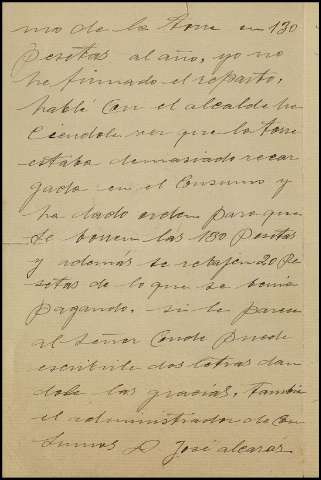 mo de la torre en 130
Pesetas al año, yo no
he firmado el reparto,
hablé con el alcalde ha
ciéndole ver que la torre
estaba demasiado recar
gada en el Consumo y
ha dado orden para que
se borren las 130 Pesetas
y además se rebajen 20 Pe
setas de lo que se benia
pagando. si le parece
al Señor Conde puede
escribirle dos letras dan
dole las gracias, también
el administrador de con
sumos D José alcaras